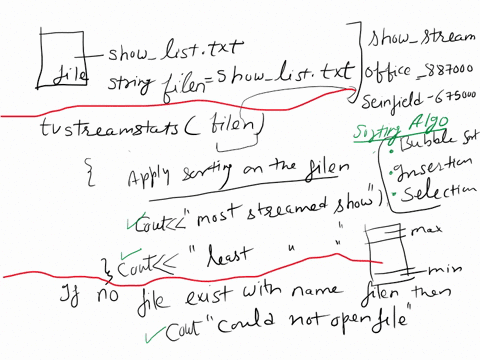 file
show_list.txt
string filen=show_list.txt
show_stream
office_887000
Seinfield-675000
tvstreamstats( filen)
Sorting Algo
• Bubble Sort
• Insertion
• Selection
{ Apply sorting on the filen
Cout<<"most streamed show")
} Cout<< " least " " "
max
min
If no file exist with name filen then
Cout "Could not open file"